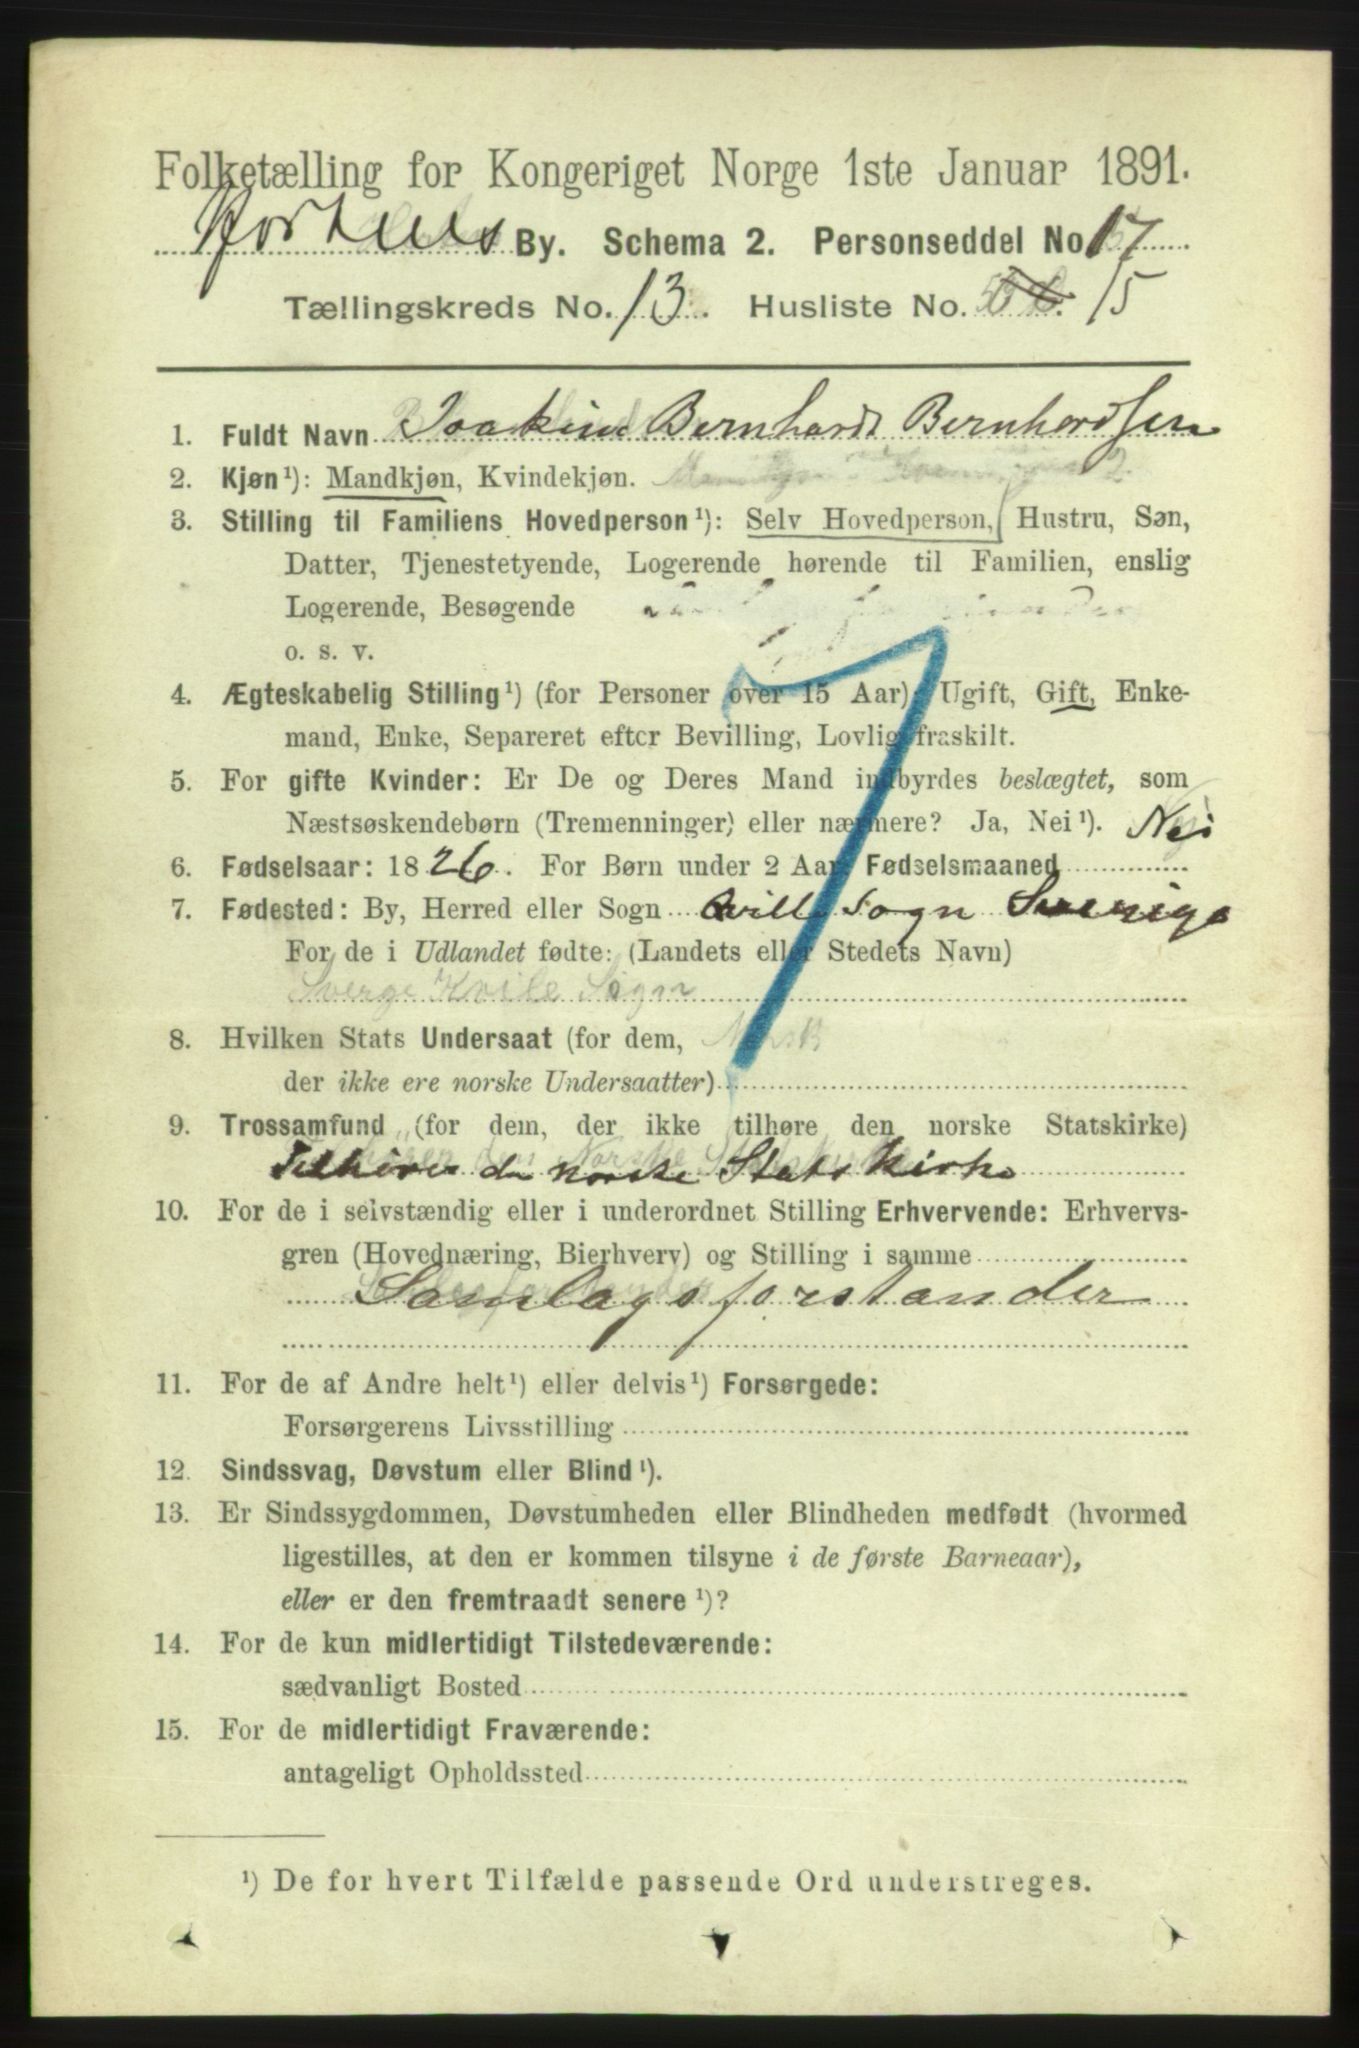 Folketælling for Kongeriget Norge 1ste Januar 1891.
Hortens By. Schema 2. Personseddel No 17
Tællingskreds No. 13. Husliste No. 15
1. Fuldt Navn Joakim Bernhardt Bernhardsen
2. Kjøn¹): Mandkjøn, Kvindekjøn.
3. Stilling til Familiens Hovedperson¹): Selv Hovedperson, Hustru, Søn,
Datter, Tjenestetyende, Logerende hørende til Familien, enslig
Logerende, Besøgende
o. s. v.
4. Ægteskabelig Stilling¹) (for Personer over 15 Aar): Ugift, Gift, Enke-
mand, Enke, Separeret efter Bevilling, Lovlig fraskilt.
5. For gifte Kvinder: Er De og Deres Mand indbyrdes beslægtet, som
Næstsøskendebørn (Tremenninger) eller nærmere? Ja, Nei¹). Nei
6. Fødselsaar: 1826. For Børn under 2 Aar: Fødselsmaaned
7. Fødested: By, Herred eller Sogn Qville Sogn Sverige
For de i Udlandet fødte: (Landets eller Stedets Navn)
Sverge Kvile Sogn
8. Hvilken Stats Undersaat (for dem, Norsk
der ikke ere norske Undersaatter)
9. Trossamfund (for dem, der ikke tilhøre den norske Statskirke)
Tilhører den norske Statskirke
10. For de i selvstændig eller i underordnet Stilling Erhvervende: Erhvervs-
gren (Hovednæring, Bierhverv) og Stilling i samme
Samlagsforstander
11. For de af Andre helt¹) eller delvis¹) Forsørgede:
Forsørgerens Livsstilling
12. Sindssvag, Døvstum eller Blind¹).
13. Er Sindssygdommen, Døvstumheden eller Blindheden medfødt (hvormed
ligestilles, at den er kommen tilsyne i de første Barneaar),
eller er den fremtraadt senere¹)?
14. For de kun midlertidigt Tilstedeværende:
sædvanligt Bosted
15. For de midlertidigt Fraværende:
antageligt Opholdssted
¹) De for hvert Tilfælde passende Ord understreges.